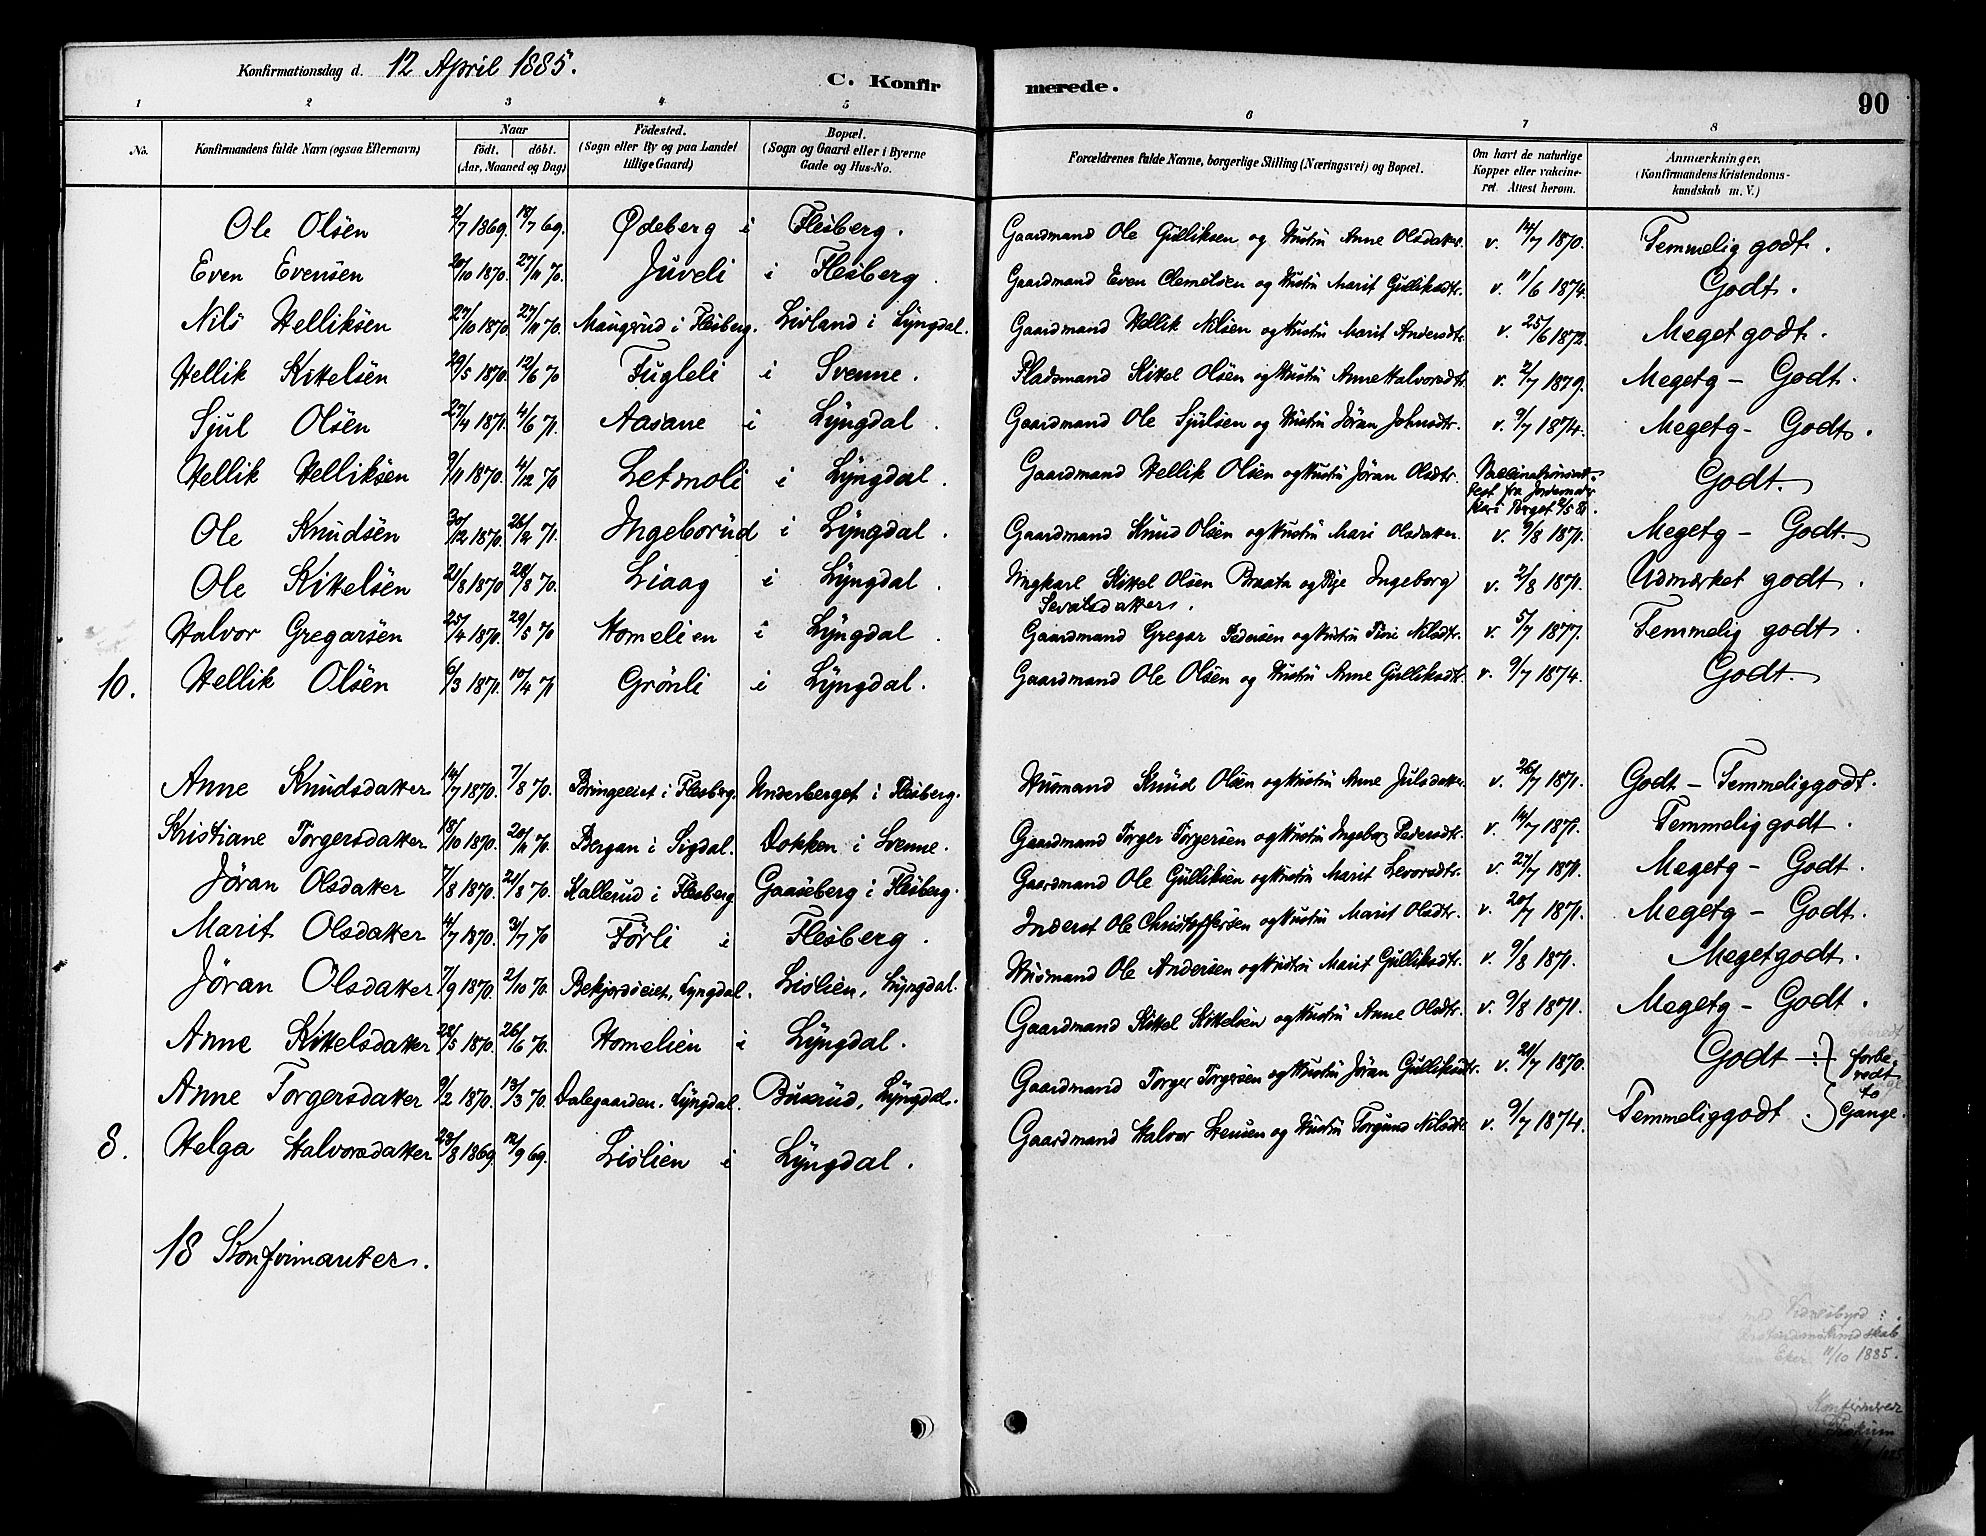 Konfirmationsdag d. 12 April 1885.
C. Konfirmerede.
90
1 2 3 4 5 6 7 8
No.
Konfirmandens fulde Navn (ogsaa Efternavn)
Naar
födt. döbt.
(Aar, Maaned og Dag)
Födested.
(Sogn eller By og paa Landet
tillige Gaard)
Bopæl.
(Sogn og Gaard eller i Byerne
Gade og Hus-No.
Forældrenes fulde Navne, borgerlige Stilling (Næringsvei) og Bopæl.
Om havt de naturlige
Kopper eller vakcine-
ret. Attest herom.
Anmærkninger.
(Konfirmandens Kristendoms-
kundskab m. V.)
Ole Olsen 2/7 1869. 18/7 69. Ødeberg i Flesberg. Gaardmand Ole Gulliksen og Hustru Anne Olsdatter. v. 14/7 1870. Temmelig godt.
Even Evensen 20/10 1870. 27/11 70. Juveli i Flesberg. Gaardmand Even Clemetsen og Hustru Marit Gulliksdtr. v. 11/6 1874. Godt.
Nils Helliksen 27/10 1870. 27/11 70. Maugerud i Flesberg. Livland i Lyngdal. Gaardmand Hellik Nilsen og Hustru Marit Andersdtr. v. 25/6 1872. Meget godt.
Hellik Kittelsen 29/5 1870. 12/6 70 Fugleli i Svenne. Pladsmand Kittel Olsen og Hustru Anne Halvorsdtr. v. 2/7 1879. Megetg – Godt.
Sjul Olsen 27/4 1871. 4/6 71. Aasane i Lyngdal. Gaardmand Ole Sjulsen og Hustru Jøran Johnsdtr. v. 9/7 1874. Megetg – Godt.
Hellik Helliksen 9/11 1870. 4/12 70 Letmoli i Lyngdal. Gaardmand Hellik Olsen og Hustru Jøran Olsdtr. Vaccinationsat-
test fra Jordemoder
Godt.
Ole Knudsen 30/12 1870. 26/2 71. Ingeborud i Lyngdal. Gaardmand Knud Olsen og Hustru Mari Olsdatter. v. 9/8 1871. Megetg – Godt.
Ole Kittelsen 21/8 1870 28/8 70. Liaag i Lyngdal. Ungkarl Kittel Olsen Braata og Pige Ingeborg v. 2/8 1871. Udmærket godt.
Sevalsdatter.
Halvor Gregarsen 25/4 1870. 29/5 70 Homelien i Lyngdal. Gaardmand Gregar Pedersen og Hustru Siri Nilsdtr. v. 5/7 1877. Temmelig godt.
10. Hellik Olsen 6/3 1871. 10/4 71 Grönli i Lyngdal. Gaardmand Ole Olsen og Hustru Anne Gulliksdtr. v. 9/7 1874. Godt.
Anne Knudsdatter 14/7 1870. 7/8 70. Bringeeiet i Flesberg. Underberget i Flesberg. Husmand Knud Olsen og Hustru Anne Julsdatter. v. 26/7 1871. Godt – Temmeliggodt.
Kristiane Torgersdatter 18/10 1870. 20/11 70. Bergan i Sigdal. Dokken i Svenne. Gaardmand Torger Torgersen og Hustru Ingeborg Pedersdtr. v. 14/7 1871. Temmelig godt.
Jøran Olsdatter 7/8 1870. 21/8 70. Kallerud i Flesberg Gaaseberg i Flesberg. Gaardmand Ole Gulliksen og Hustru Marit Levorsdtr. v. 27/7 1871. Megetg – Godt.
Marit Olsdatter 4/7 1870. 31/7 70 Førli i Flesberg. Inderst Ole Christoffersen og Hustru Marit Olsdtr. v. 20/7 1871. Megetg – Godt.
Jøran Olsdatter 7/9 1870. 2/10 70. Bekjordseiet, Lyngdal. Lislien, Lyngdal. Husmand Ole Andersen og Hustru Marit Gulliksdtr. v. 9/8 1871. Megetgodt.
Anne Kittelsdatter 28/5 1870. 26/6 70. Homelien i Lyngdal. Gaardmand Kittel Kittelsen og Hustru Anne Olsdtr. v. 9/8 1871. Megetg – Godt.
Anne Torgersdatter 9/2 1870. 13/3 70. Dalegaarden, Lyngdal. Buxrud, Lyngdal. Gaardmand Torger Torgersen og Hustru Jøran Gulliksdtr. v. 21/7 1870. Godt
8. Helga Halvorsdatter 23/8 1869. 12/9 69. Lislien i Lyngdal. Gaardmand Halvor Stensen og Hustru Torgund Nilsdtr. v. 9/7 1874. Temmeliggodt.
forbe-
redt
to
Gange.
18 Konfirmanter.
Vidnesbyrd
11/10 1885.